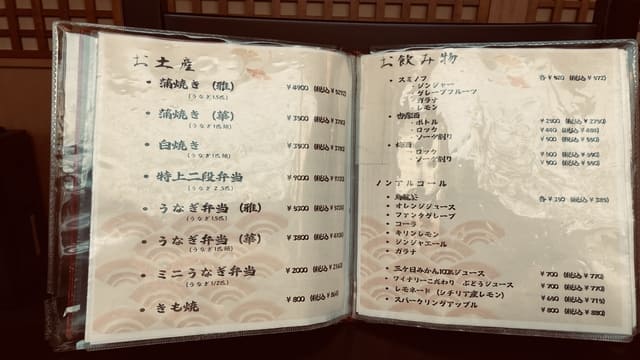 お土産
• 蒲焼き（雅） ¥4900 (税込¥5292)
（うなぎ1.5匹）
• 蒲焼き（華） ¥3500 (税込¥3780)
（うなぎ1匹）
• 白焼き ¥3500 (税込¥3780)
（うなぎ1匹）
• 特上二段弁当
（うなぎ2.5匹）
• うなぎ弁当（雅）
（うなぎ1.5匹）
• うなぎ弁当（華） ¥3800 (税込¥4104)
（うなぎ1匹）
• ミニうなぎ弁当 ¥2000 (税込¥2160)
（うなぎ1/2匹）
• きも焼 ¥800 (税込¥864)
お飲み物
• スミノフ 各¥520 (税込¥572)
・ジンジャー
・グレープフルーツ
・ガラナ
・レモン
・ボトル ¥2500 (税込¥2750)
・ロック
・ソーダ割り ¥500 (税込¥550)
・ロック ¥500 (税込¥550)
・ソーダ割り ¥500 (税込¥550)
ノンアルコール
• 烏龍茶 各¥350 (税込¥385)
• オレンジジュース
• ファンタグレープ
• コーラ
• キリンレモン
• ジンジャエール
• ガラナ
• 三ケ日みかん100%ジュース ¥700 (税込¥770)
• ワイナリーこだわり ぶどうジュース ¥700 (税込¥770)
• レモネード（シチリア産レモン） ¥650 (税込¥715)
• スパークリングアップル ¥800 (税込¥880)